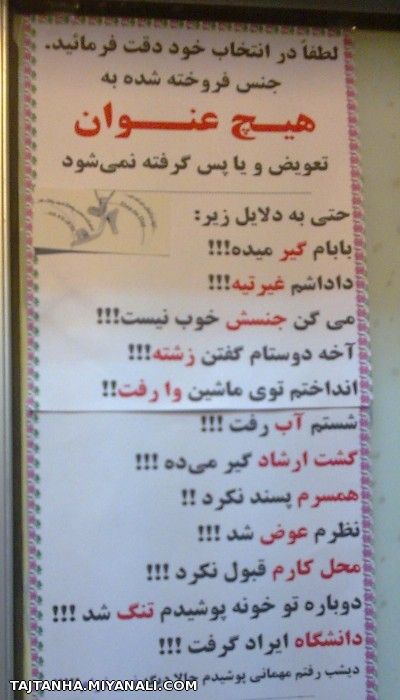 لطفاً در انتخاب خود دقت فرمائید.
جنس فروخته شده به
هیـچ عنـوان
تعویض و یا پس گرفته نمی‌شود
حتی به دلایل زیر:
بابام گیر میده!!!
داداشم غیرتیه!!!
می گن جنسش خوب نیست!!!
آخه دوستام گفتن زشته!!!
انداختم توی ماشین وا رفت!!
شستم آب رفت !!!
گشت ارشاد گیر می‌ده !!!
همسرم پسند نکرد !!
نظرم عوض شد !!!
محل کارم قبول نکرد !!!
دوباره تو خونه پوشیدم تنگ شد !!!
دانشگاه ایراد گرفت !!!
دیشب رفتم مهمانی پوشیدم حالا
TAJTANHA.MIYANALI.COM